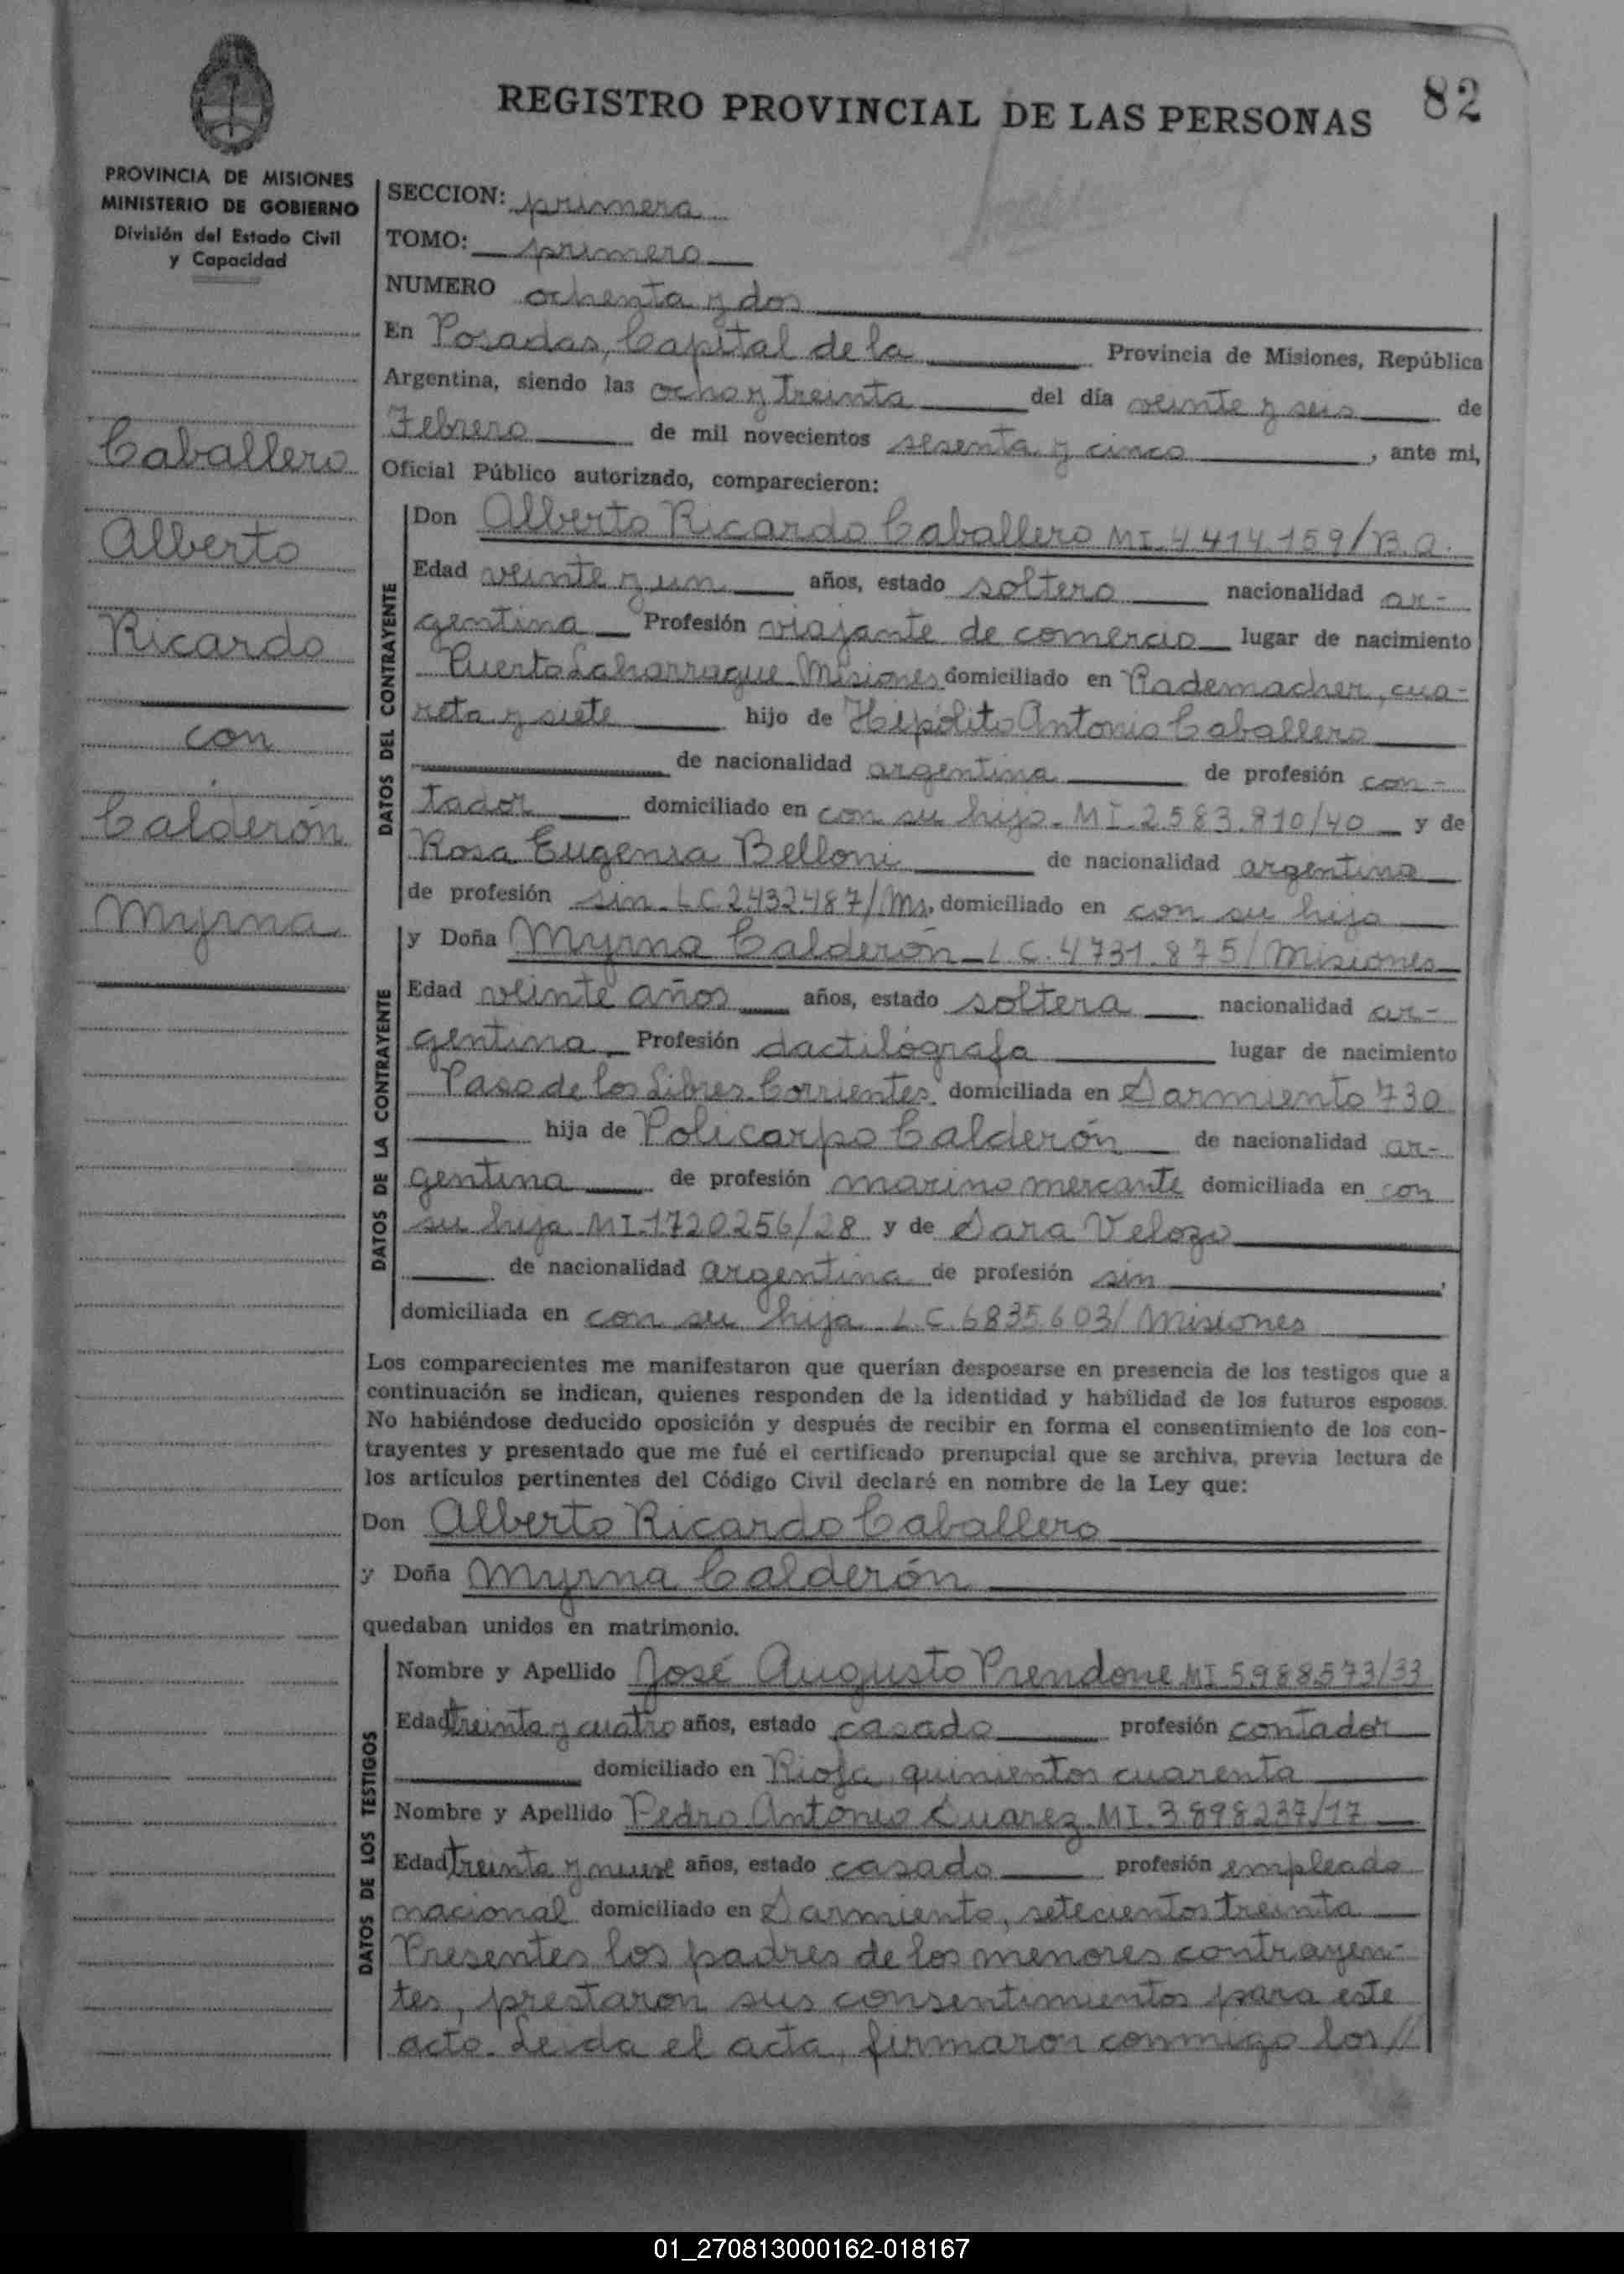 REGISTRO PROVINCIAL DE LAS PERSONAS 82
PROVINCIA DE MISIONES
MINISTERIO DE GOBIERNO
División del Estado Civil
y Capacidad
Caballero
Alberto
Ricardo
con
Calderón
Myrna
SECCION: primera
TOMO: primero
NUMERO ochenta y dos
En Posadas, Capital de la Provincia de Misiones, República
Argentina, siendo las ocho y treinta del día veinte y seis de
Febrero de mil novecientos sesenta y cinco, ante mi,
Oficial Público autorizado, comparecieron:
DATOS DEL CONTRAYENTE
Don Alberto Ricardo Caballero MI.4414.159/B.A.
Edad veinte y un años, estado soltero nacionalidad ar-
gentina Profesión viajante de comercio lugar de nacimiento
Puerto Laharrague Misiones domiciliado en Rademacher, cua-
reta y siete hijo de Hipólito Antonio Caballero
de nacionalidad argentina de profesión con-
tador domiciliado en con su hijo. MI.2.583.810/40 y de
Rosa Eugenia Belloni de nacionalidad argentina
de profesión sin LC.2.432.487/Ms, domiciliado en con su hijo
DATOS DE LA CONTRAYENTE
y Doña Myrna Calderón L.C. 4731.875/Misiones
Edad veinte años años, estado soltera nacionalidad ar-
gentina Profesión dactilógrafa lugar de nacimiento
Paso de los Libres. Corrientes domiciliada en Sarmiento 730
hija de Policarpo Calderón de nacionalidad ar-
gentina de profesión marino mercante domiciliada en con
su hija MI.1.720.256/28 y de Sara Velozo
de nacionalidad argentina de profesión sin,
domiciliada en con su hija L.C. 6.835.603/Misiones
Los comparecientes me manifestaron que querían desposarse en presencia de los testigos que a
continuación se indican, quienes responden de la identidad y habilidad de los futuros esposos.
No habiéndose deducido oposición y después de recibir en forma el consentimiento de los con-
trayentes y presentado que me fué el certificado prenupcial que se archiva, previa lectura de
los artículos pertinentes del Código Civil declaré en nombre de la Ley que:
Don Alberto Ricardo Caballero
y Doña Myrna Calderón
quedaban unidos en matrimonio.
DATOS DE LOS TESTIGOS
Nombre y Apellido José Augusto Prendone MI 5.988.573/33
Edad treinta y cuatro años, estado casado profesión contador
domiciliado en Rioja, quinientos cuarenta
Nombre y Apellido Pedro Antonio Suarez. MI. 3.898.237/17
Edad treinta y nueve años, estado casado profesión empleado
nacional domiciliado en Sarmiento, setecientos treinta
Presentes los padres de los menores contrayen-
tes, prestaron sus consentimientos para este
acto. Leida el acta, firmaron conmigo los//
01_270813000162-018167